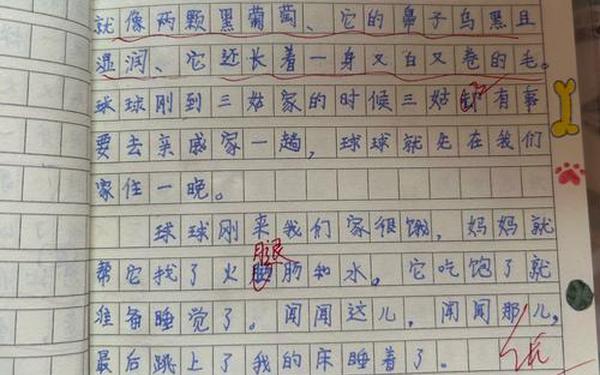 就像两颗黑葡萄、它的鼻子乌黑且
湿润、它还长着一身又白又卷的毛。
球球刚到三姑家的时候三姑有事
要去亲戚家一趟，球球就先在我们
家住一晚。
球球刚来我们家很饿，妈妈就
帮它找了火腿肠和水。它吃饱了就
准备睡觉了。闻闻这儿，闻闻那儿，
最后跳上了我的床睡着了。